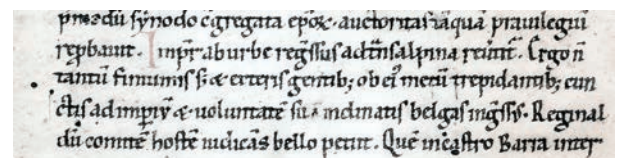 p̄mꝫdū synodo c̄gregata ep̄oꝝ. auctoritas iāqua p̄uilegiū
rep̄baunt. Imp̄r ab urbe reg̃ssus ad t̃nsalpina reuiti͛. Ergo ñ
tantū finitimis s; & exteris gentib; ob ei9 metū trepidantib; cun
ctis ad imp̄iū & uoluntatē suā inclinatis belgas ing̃ss9. Reginal
dū comitē hostē iudicās bello petiit. Quē in castro Barra inter